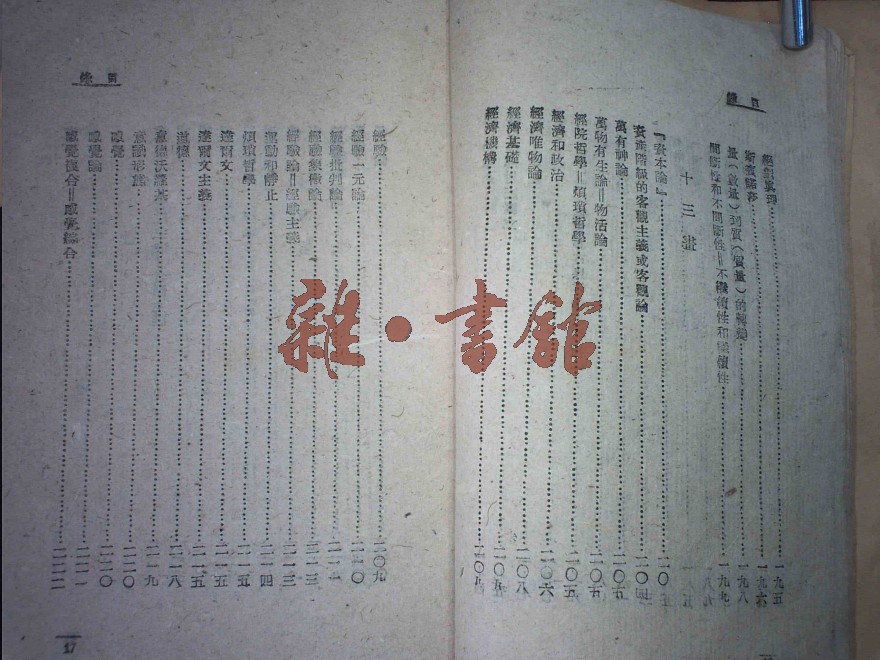 目錄
斯賓諾莎……一九六
量（數量）到質（質量）的轉變……一九八
間斷性和不間斷性＝不連續性和連續性……一九九
十三畫
『資本論』……二〇三
資產階級的客觀主義或客觀論……二〇四
萬有神論……二〇五
萬物有生論＝物活論……二〇五
經院哲學＝煩瑣哲學……二〇五
經濟和政治……二〇六
經濟唯物論……二〇八
經濟基礎……二〇九
經濟機構……二〇九
目錄
經驗……二〇九
經驗一元論……二一〇
經驗批判論……二一一
經驗象徵論……二一三
經驗論＝經驗主義……二一三
運動和靜止……二一四
煩瑣哲學……二一五
達爾文……二一五
達爾文主義……二一五
道德……二一八
意德沃羅基……二一九
意識形態……二二〇
感覺……二二〇
感覺論……二二一
感覺複合＝感覺綜合……二二二
17
雜·書館